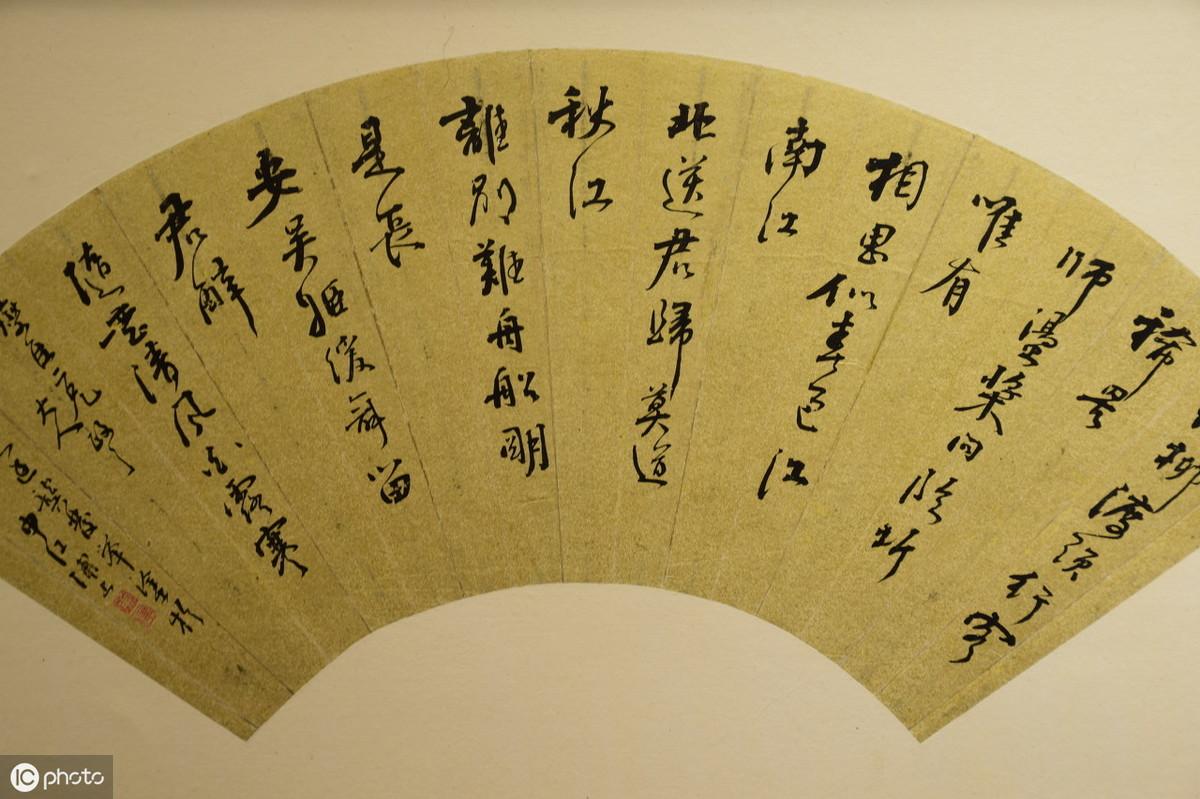 柳渡頭行客
稀罟
師盪槳向臨圻
唯有
相思似春色江
南江
北送君歸莫道
秋江
離別難舟船明
是長
安吳姬緩舞留
君醉
隨意清風白露寒
大人
IC photo